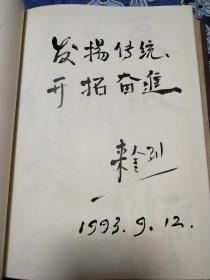 发揚传统、
开拓奋進
1993.9.12.